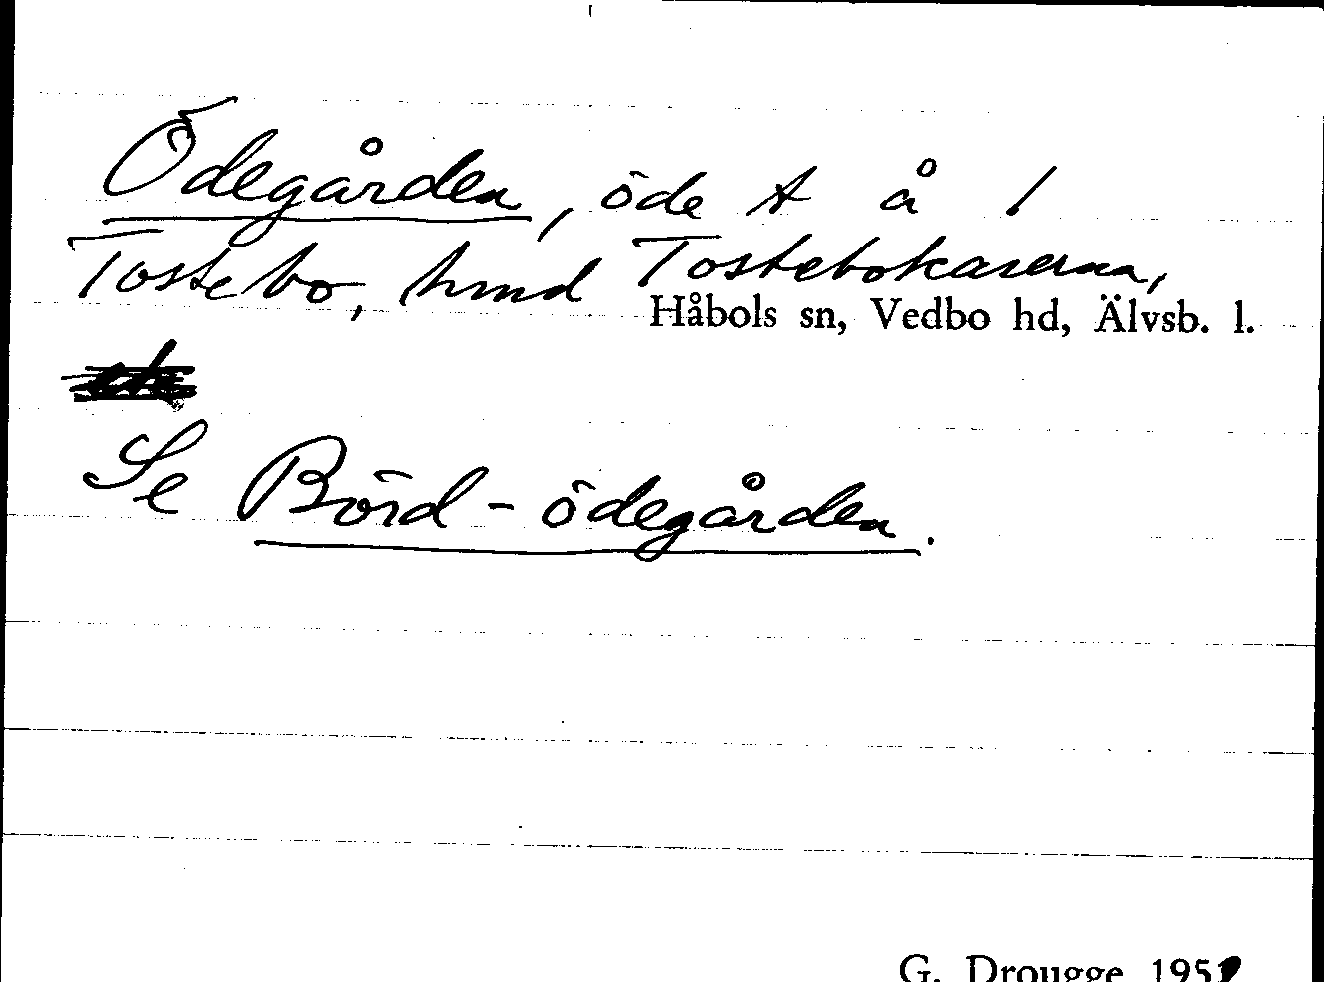 Ödegården, öde t å 1
Tostebo, hmd Tostebokaserna,
Håbols sn, Vedbo hd, Älvsb. l.
Se Börd-ödegården.
G. Drougge 195